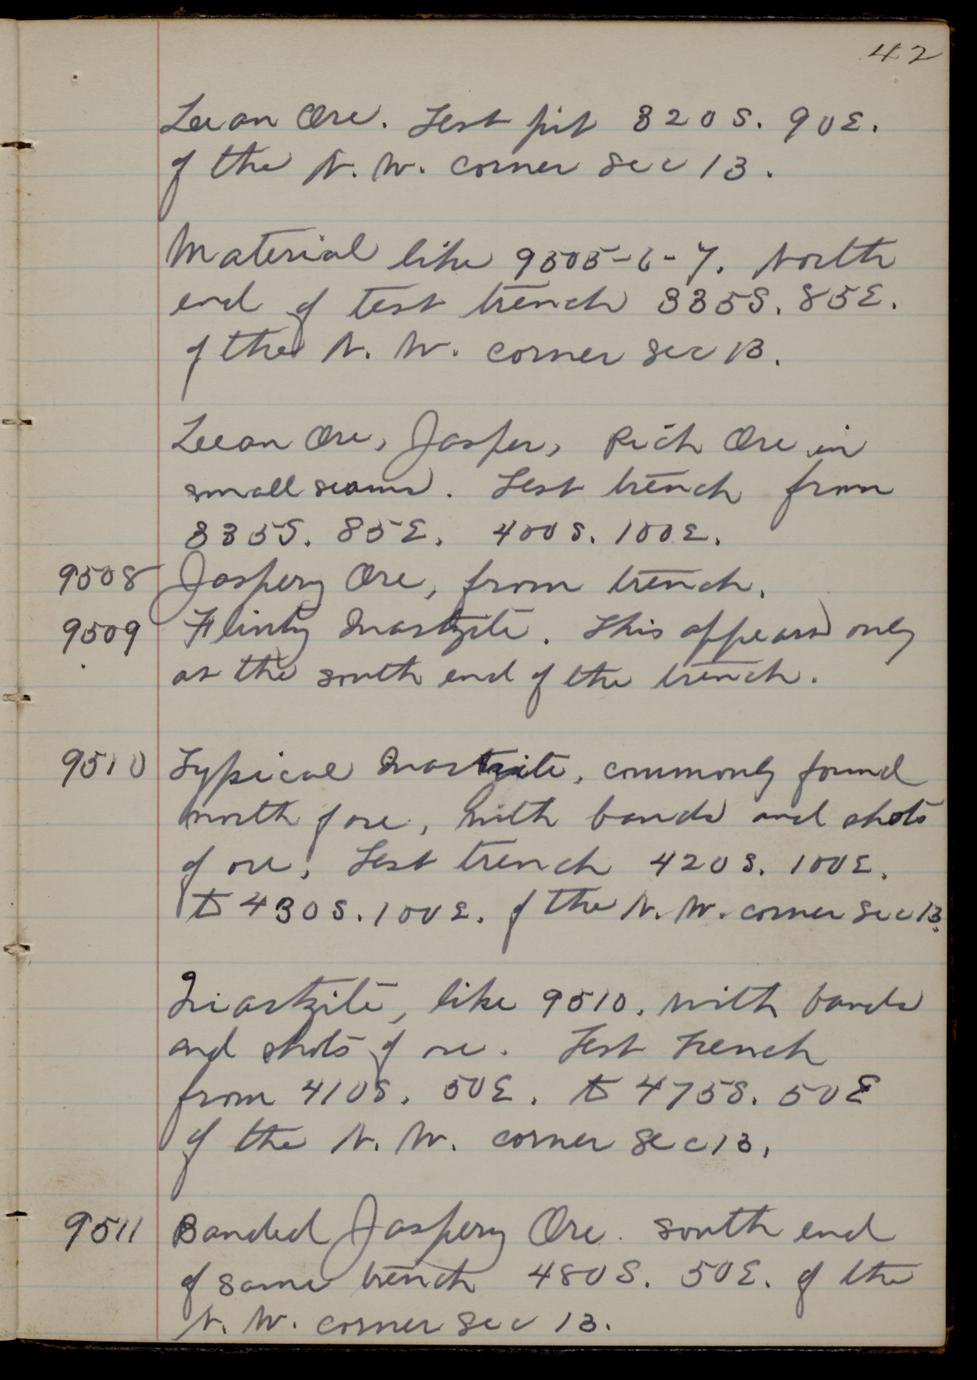 42
Lean Ore. Test pit 320 S. 90 E.
of the N. W. corner Sec 13.
Material like 9505-6-7. North
end of test trench 335 S. 85 E.
of the N. W. corner Sec 13.
Lean Ore, Jasper, Rich Ore in
small seams. Test trench from
335 S. 85 E. 400 S. 100 E.
9508 Jaspery Ore, from trench.
9509 Flinty Quartzite. This appears only
at the south end of the trench.
9510 Typical Quartzite, commonly found
north of ore, with bands and shots
of ore. Test trench 420 S. 100 E.
to 430 S. 100 E. of the N. W. corner Sec 13.
Quartzite, like 9510. with bands
and shots of ore. Test trench
from 410 S. 50 E. to 475 S. 50 E
of the N. W. corner Sec 13.
9511 Banded Jaspery Ore. South end
of same trench 480 S. 50 E. of the
N. W. corner Sec 13.